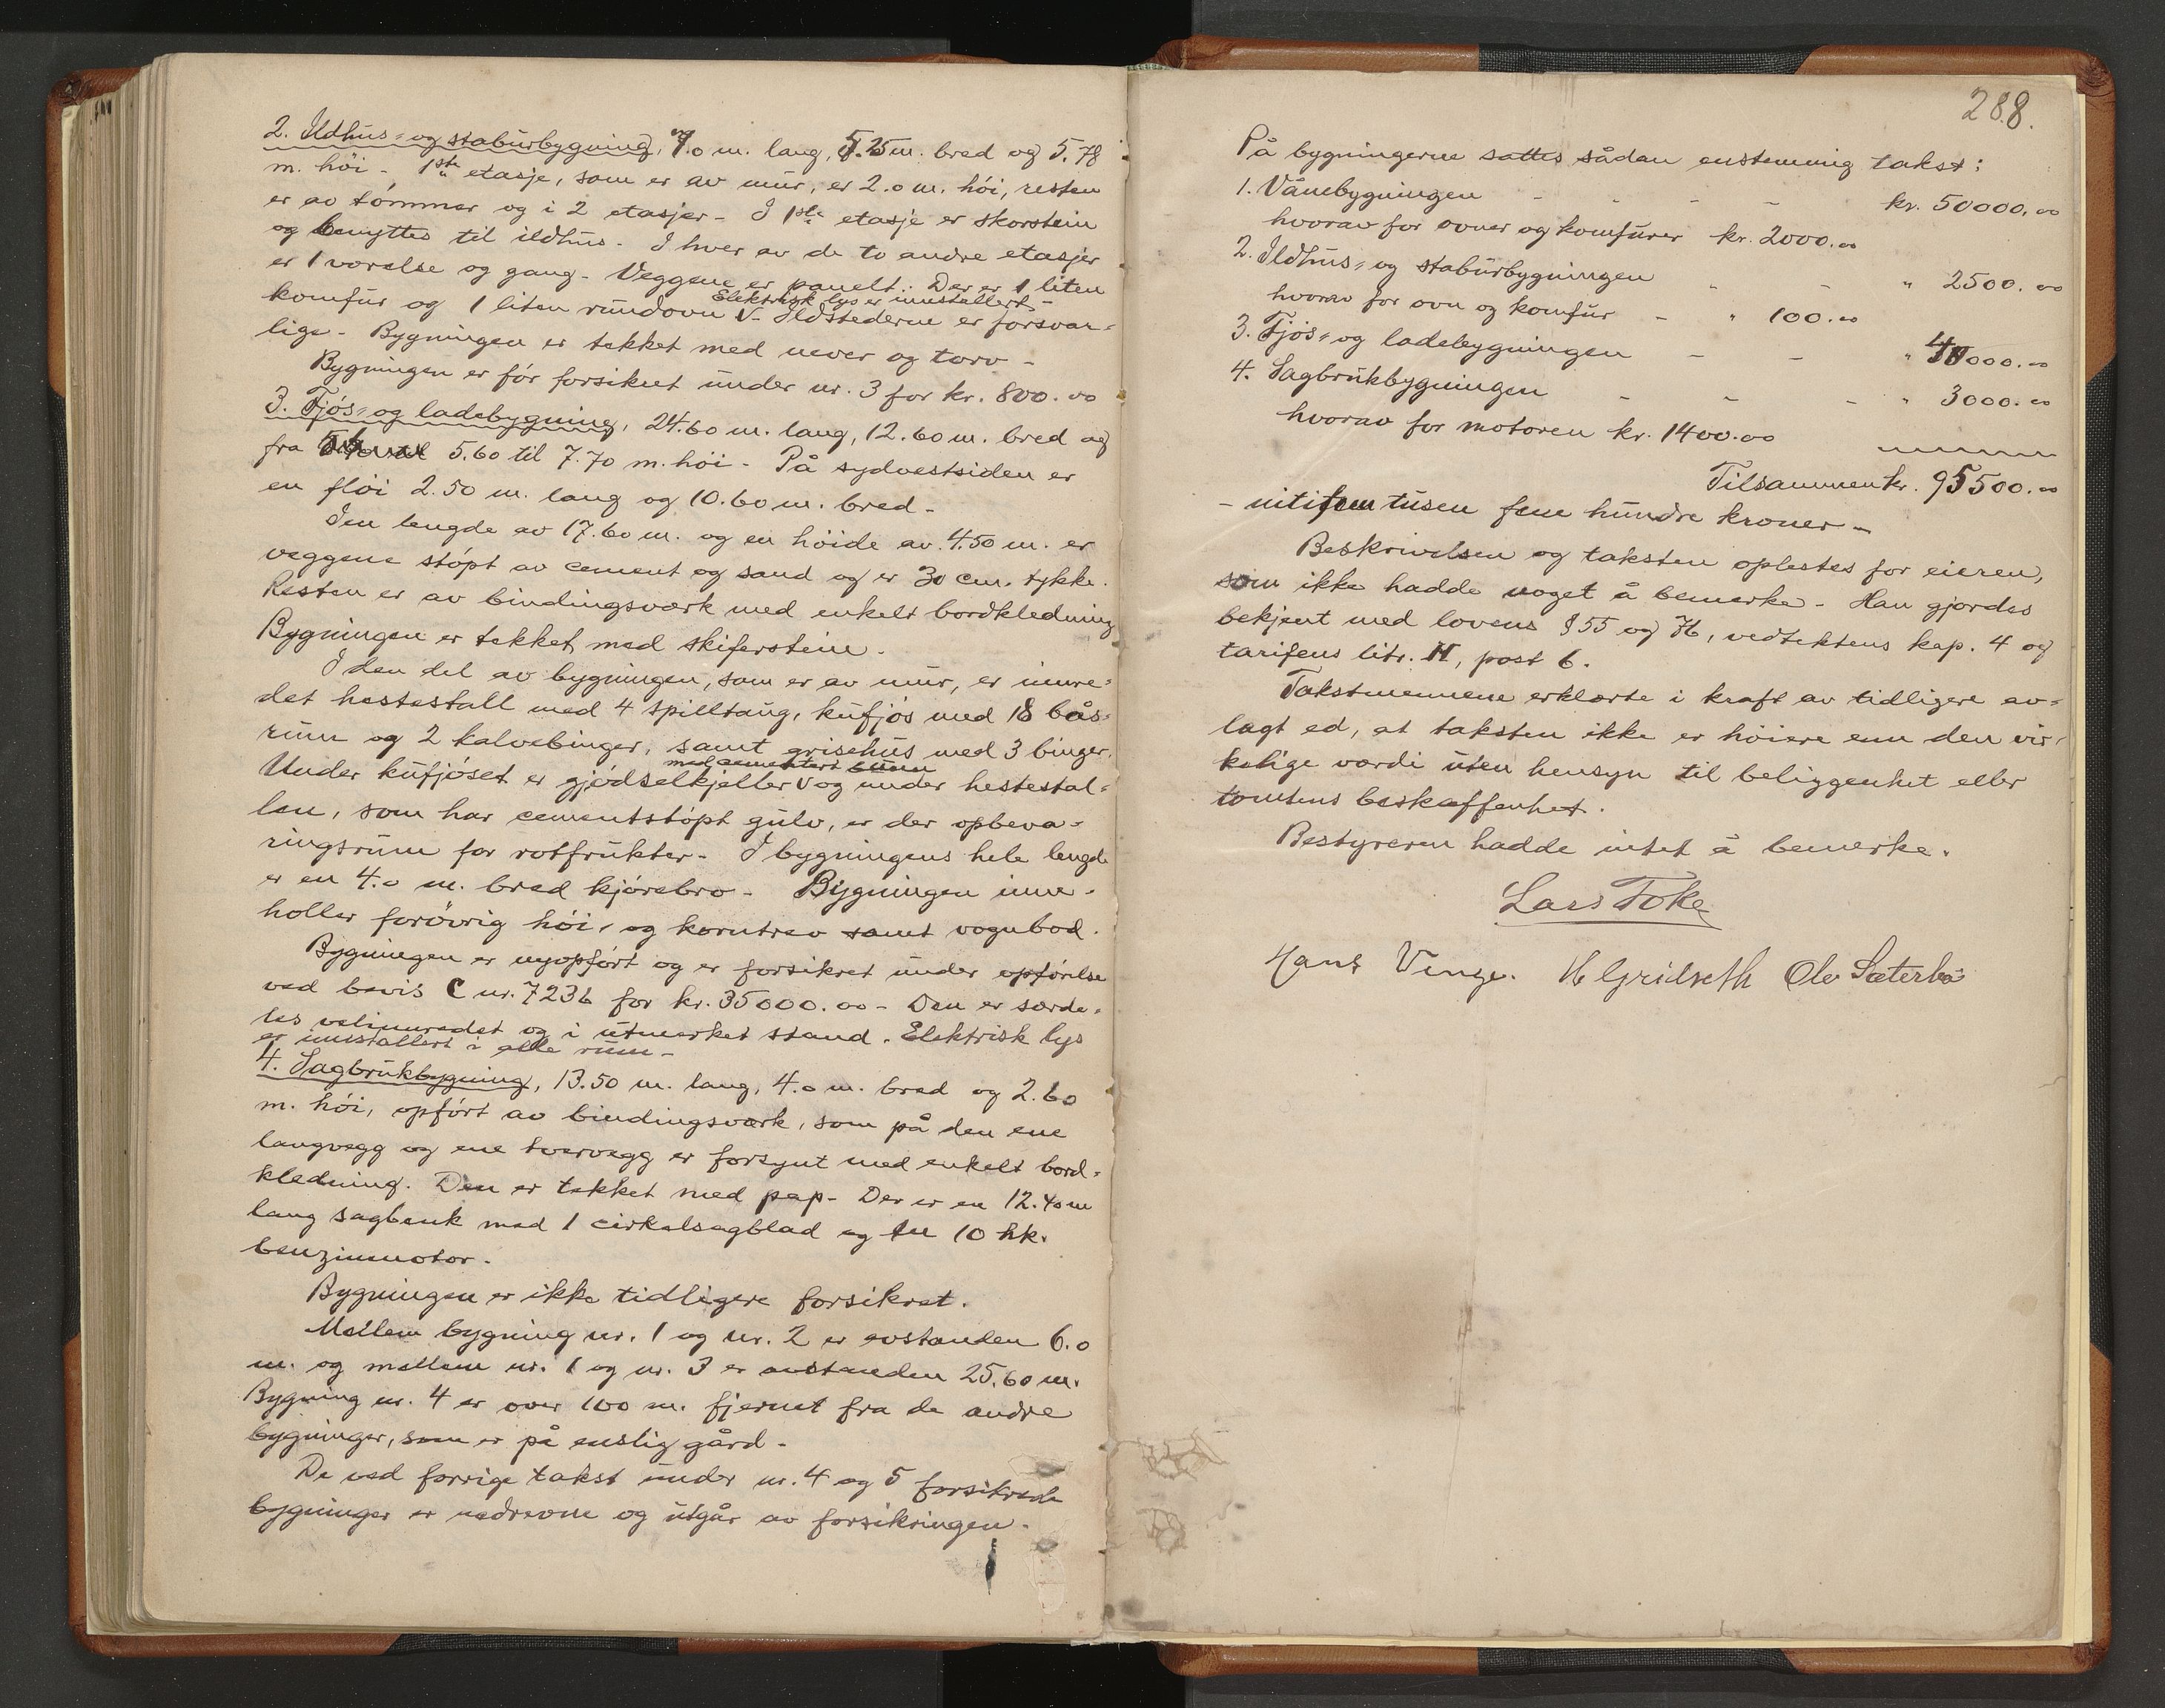 2. Ildhus- og stabursbygning, 7.0 m. lang, 5.25 m. bred og 5.78
m. höi - 1ste etasje, som er av mur, er 2.0 m. höi, resten
er av tömmer og i 2 etasjer - I 1ste etasje er skorstein
og benyttes til ildhus - I hver av de to andre etasjer
er 1 værelse og gang - Veggene er panelt. Der er 1 liten
Elektrisk lys er innstallert -
komfur og 1 liten rundovn V - Ildstederne er forsvar-
lige - Bygningen er tekket med never og torv -
Bygningen er för forsikret under nr. 3 for kr. 800.00
3. Fjös- og ladebygning, 24.60 m. lang, 12.60 m. bred og
fra 5.60 til 7.70 m. höi - På sydvestsiden er
en flöi 2.50 m. lang og 10.60 m. bred -
I en lengde av 17.60 m. og en höide av 4.50 m. er
veggene stöpt av cement og sand og er 30 cm. tykke.
Resten er av bindingsværk med enkelt bordkledning
Bygningen er tekket med skiferstein.
I den del av bygningen, som er av mur, er innre-
det hestestall med 4 spilltaug, kufjös med 18 bås-
rum og 2 kalvebinger, samt grisehus med 3 binger.
med cementert bunn
Under kufjöset er gjödselkjeller V og under hestestal-
len, som har cementstöpt gulv, er der opbeva-
ringsrum for rotfrukter - I bygningens hele lengde
er en 4.0 m. bred kjörebro - Bygningen inne-
holler forövrig höi- og korntrev samt vognbod.
Bygningen er nyopfört og er forsikret under opförelse
ved bevis C nr. 7236 for kr. 35000.00 - Den er særde-
les velinnredet og i utmerket stand. Elektrisk lys
er innstallert i alle rum -
4. Sagbrukbygning, 13.50 m. lang, 4.0 m. bred og 2.60
m. höi, opfört av bindingsværk, som på den ene
langvegg og ene tvervegg er forsynt med enkelt bord-
kledning. Den er tekket med pap - Der er en 12.40 m
lang sagbenk med 1 cirkelsagblad og en 10 hk.
benzinmotor.
Bygningen er ikke tidligere forsikret.
Mellem bygning nr. 1 og nr. 2 er avstanden 6.0
m. og mellem nr. 1 og nr. 3 er avstanden 25.60 m.
Bygning nr. 4 er over 100 m. fjernet fra de andre
bygninger, som er på enslig gård -
De ved forrige takst under nr. 4 og 5 forsikrede
bygninger er nedrevne og utgår av forsikringen -
288.
På bygningerne sattes sådan enstemmig takst:
1. Vånebygningen - - - - kr. 50000.00
hvorav for ovner og komfurer kr. 2000.00
2. Ildhus- og stabursbygningen - - " 2500.00
hvorav for ovn og komfur - " 100.00
3. Fjös- og ladebygningen - - " 40000.00
4. Sagbrukbygningen - - - " 3000.00
hvorav for motoren kr. 1400.00
Tilsammen kr. 95500.00
- nitifem tusen fem hundre kroner -
Beskrivelsen og taksten oplestes for eieren,
som ikke hadde noget å bemerke - Han gjordes
bekjent med lovens § 55 og 76, vedtektens kap. 4 og
tarifens litr. H, post 6.
Takstmennene erklærte i kraft av tidligere av-
lagt ed, at taksten ikke er höiere enn den vir-
kelige værdi uten hensyn til beliggenhet eller
tomtens beskaffenhet.
Bestyreren hadde intet å bemerke.
Lars Foke
Hans Venge. H Gridseth Ole Sæterbö